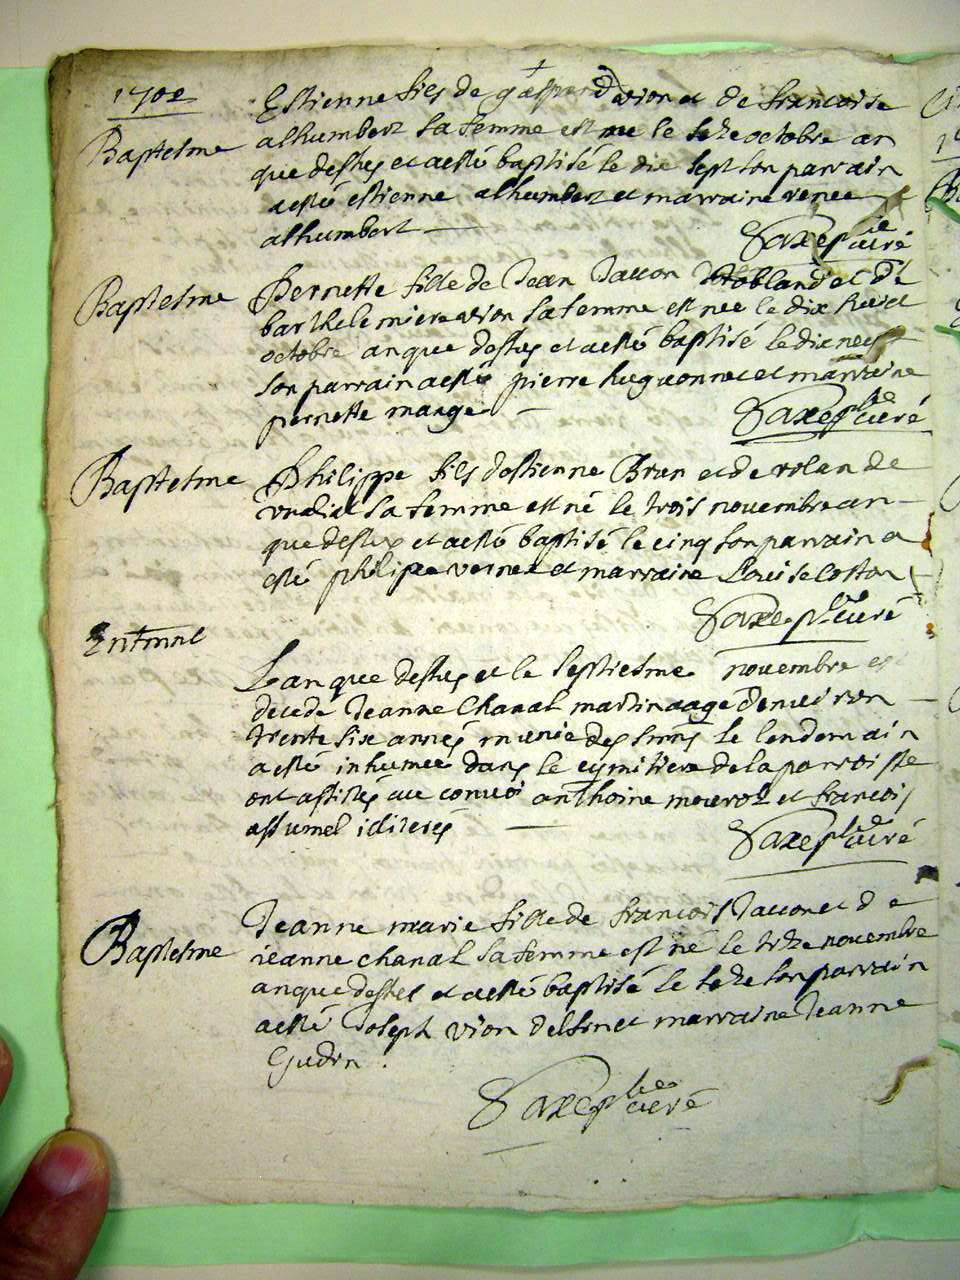 1702
Baptesme
Estienne fils de gaspard vion et de francoise
alhumbert sa femme est né le seze octobre an
que dessus et a esté baptisé le dix sept son parrain
a esté estienne alhumbert et marraine renee
alhumbert
curé
Baptesme
Pernette fille de Jean Jaccon et de
barthelemiere vion sa femme est nee le dix huict
octobre an que dessus et a esté baptisé le dix neuf
son parrain a esté pierre huguonnet et marraine
pernette mange
curé
Baptesme
Philippe fils destienne Brun et de rolande
sa femme est né le trois novembre an
que dessus et a esté baptisé le cinq son parrain a
esté philippe vernet et marraine Louise Coston
curé
Lan que dessus et le septiesme novembre est
decedé Jeanne Chanal martin aagé denviron
trente six annés munie des smns le lendemain
a esté inhumeé dans le cymitiere de la parroisse
ont assistés au convoi anthoine mourot et francois
assumel
curé
Baptesme
Jeanne marie fille de francois Jaccon et de
jeanne chanal sa femme est né le treze novembre
an que dessus et a esté baptisé le seze son parrain
a esté Joseph vion delphin et marraine Jeanne
Gudin .
curé